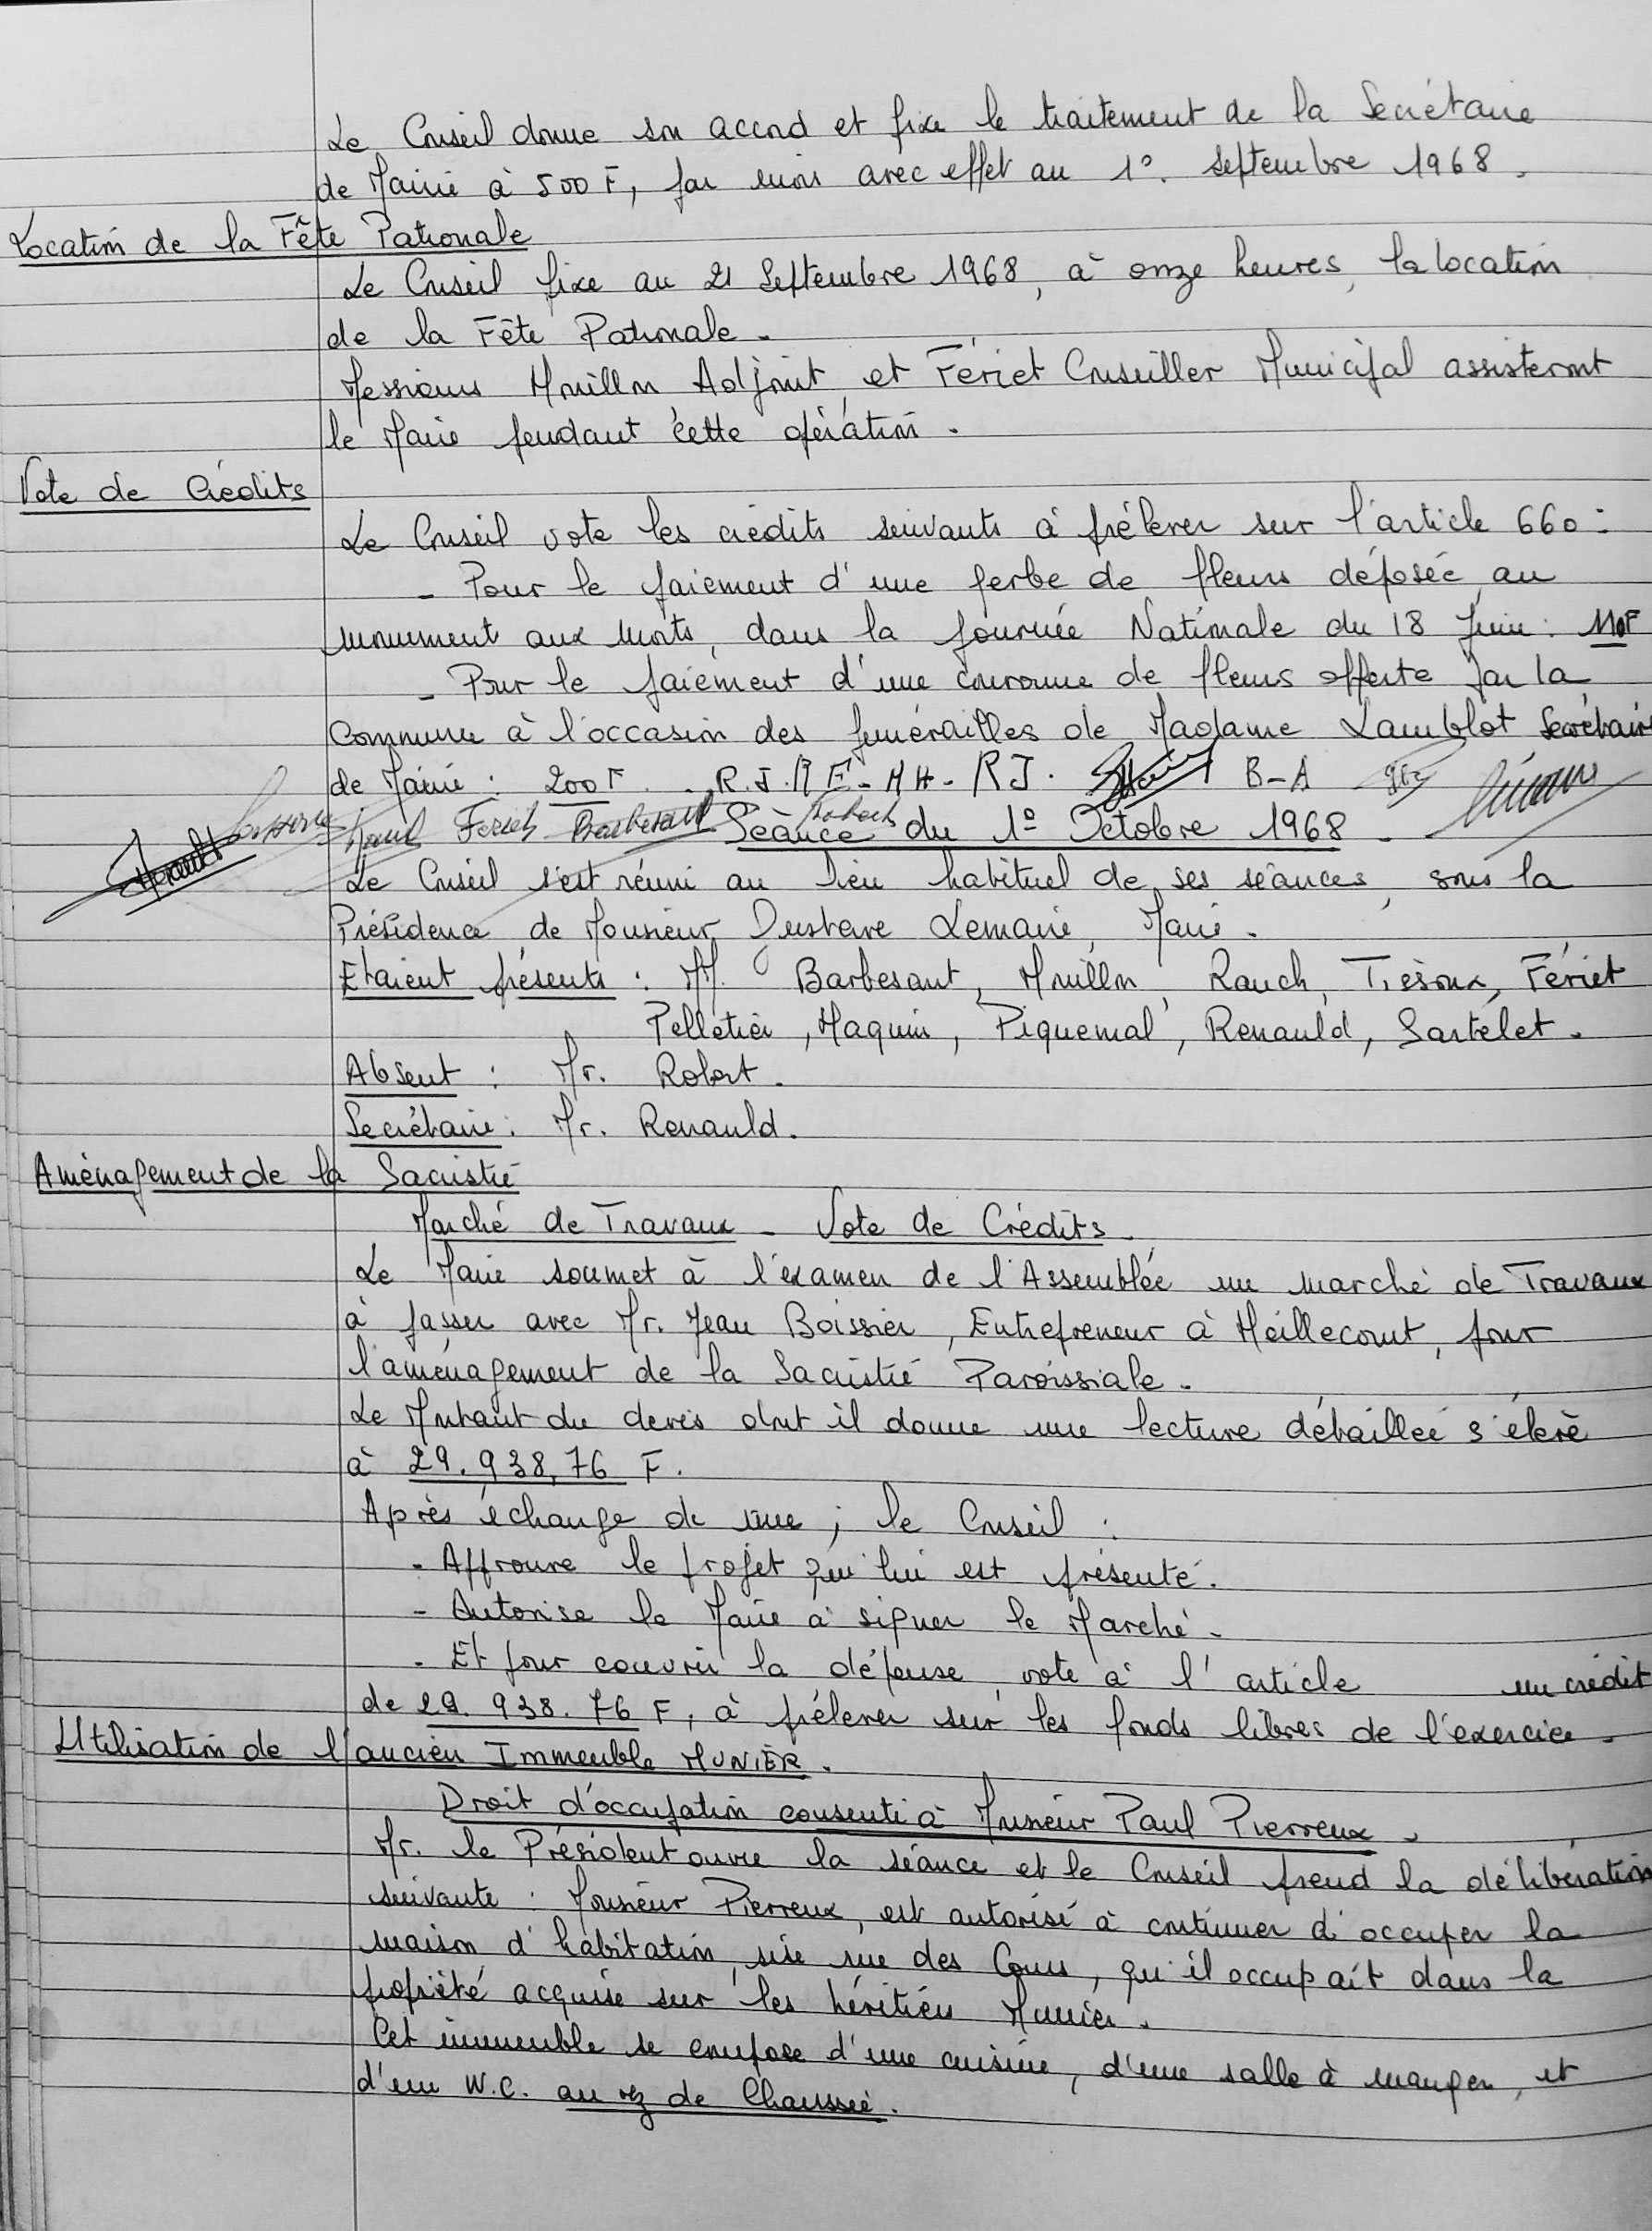 Le Conseil donne son accord et fixe le traitement de la Secrétaire
de Mairie à 500 F, par mois avec effet au 1°. Septembre 1968.
Location de la Fête Patronale
Le Conseil fixe au 21 Septembre 1968, à onze heures, la location
de la Fête Patronale.
Messieurs Mouillon Adjoint et Fériet Conseiller Municipal assisteront
le Maire pendant cette opération.
Vote de Crédits
Le Conseil vote les crédits suivants à prélever sur l'article 660:
- Pour le paiement d'une gerbe de fleurs déposée au
monument aux Morts, dans la journée Nationale du 18 Juin: 110F
- Pour le paiement d'une couronne de fleurs offerte par la
Commune à l'occasion des funérailles de Madame Lamblot Secrétaire
de Mairie: 200 F. R.J. B-A
Fériet Barbesant
Séance du 1° Octobre 1968.
Le Conseil s'est réuni au lieu habituel de ses séances, sous la
Présidence de Monsieur Gustave Lemaire, Maire.
Etaient présents: MM. Barbesant, Mouillon, Rauch, Trésoux, Fériet
Pelletier, Maquin, Piquemal, Renauld, Sartelet.
Absent: Mr. Robert.
Secrétaire: Mr. Renauld.
Aménagement de la Sacristie
Marché de Travaux - Vote de Crédits.
Le Maire soumet à l'examen de l'Assemblée un marché de Travaux
à passer avec Mr. Jean Boissier, Entrepreneur à Heillecourt, pour
l'aménagement de la Sacristie Paroissiale.
Le Montant du devis dont il donne une lecture détaillée s'élève
à 29.938,76 F.
Après échange de vue; le Conseil:
- Approuve le projet qui lui est présenté.
- Autorise le Maire à signer le Marché.
- Et pour couvrir la dépense, vote à l'article un crédit
de 29.938.76 F, à prélever sur les fonds libres de l'exercice.
Utilisation de l'ancien Immeuble MUNIER.
Droit d'occupation consenti à Monsieur Paul Pierreux.
Mr. le Président ouvre la séance et le Conseil prend la délibération
suivante: Monsieur Pierreux, est autorisé à continuer d'occuper la
maison d'habitation, sise rue des Cours, qu'il occupait dans la
propriété acquise sur les héritiers Munier.
Cet immeuble se compose d'une cuisine, d'une salle à manger, et
d'un W.C. au rz de Chaussée.